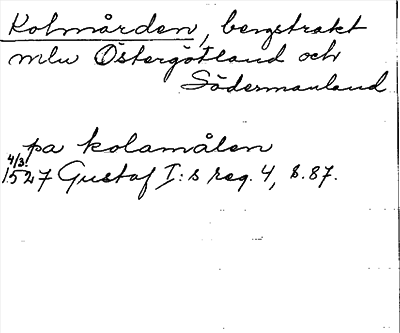 Kolmården, bergstrakt
mlw Östergötland och
Södermanland
pa kolamålen
4/3
1527 Gustaf I:s reg. 4, s. 87.